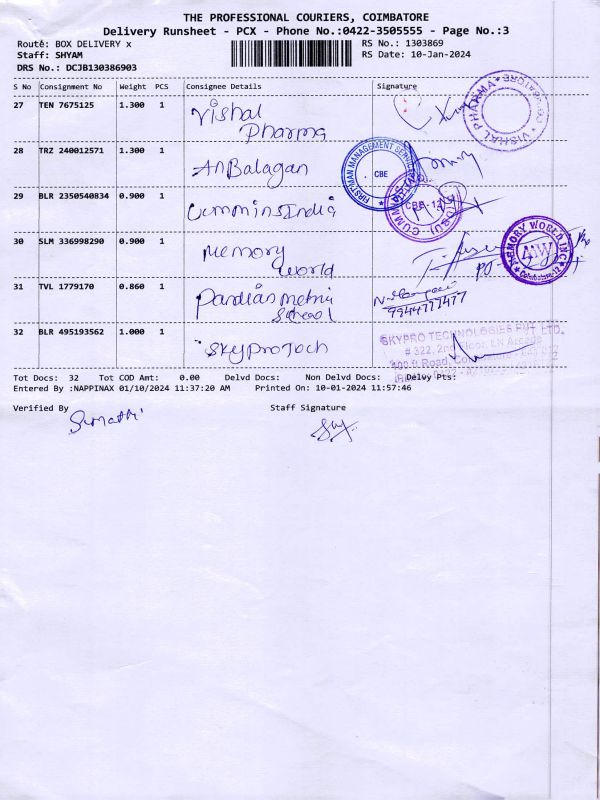 THE PROFESSIONAL COURIERS, COIMBATORE
Delivery Runsheet - PCX - Phone No.:0422-3505555 - Page No.:3
Route: BOX DELIVERY x
RS No.: 1303869
Staff: SHYAM
RS Date: 10-Jan-2024
DRS No.: DCJB130386903
S No Consignment No Weight PCS Consignee Details Signature
27 TEN 7675125 1.300 1 Vishal Pharma
VISHAL PHARMA
28 TRZ 240012571 1.300 1 AnBalagan
FIRSTMAN MANAGEMENT
CBE
29 BLR 2350540834 0.900 1 Cummins India
CBE-12
30 SLM 336998290 0.900 1 Memory World
MEMORY WORLD INC
Coimbatore-12
31 TVL 1779170 0.860 1 Pandian Metric School
9944777477
32 BLR 495193562 1.000 1 Skyprotech
SKYPRO TECHNOLOGIES PVT LTD.
# 322, 2nd Floor, LN Arcade
100 ft Road,
Tot Docs: 32 Tot COD Amt: 0.00 Delvd Docs: Non Delvd Docs: Delvy Pts:
Entered By :NAPPINAX 01/10/2024 11:37:20 AM Printed On: 10-01-2024 11:57:46
Verified By Staff Signature
Sumathi